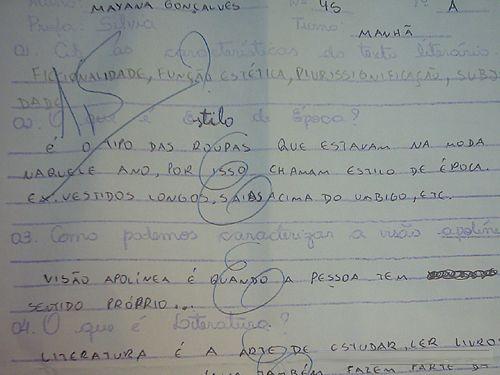 MAYANA GONÇALVES Nº 45 A
Profa: Silvia Turno: MANHÃ
01. as características do texto literário
FICCIONALIDADE, FUNÇÃO ESTÉTICA, PLURISSIGNIFICAÇÃO, SUBJ
DADE
02. O que é Estilo de Época?
É O TIPO DAS ROUPAS QUE ESTAVAM NA MODA
NAQUELE ANO, POR ISSO CHAMAM ESTILO DE ÉPOCA.
EX. VESTIDOS LONGOS, SAIAS ACIMA DO UMBIGO, ETC.
03. Como podemos caracterizar a visão apolíne
VISÃO APOLÍNEA É QUANDO A PESSOA TEM
SENTIDO PRÓPRIO...
04. O que é Literatura?
LITERATURA É A ARTE DE ESTUDAR, LER LIVRO
TAMBÉM FAZEM PARTE D